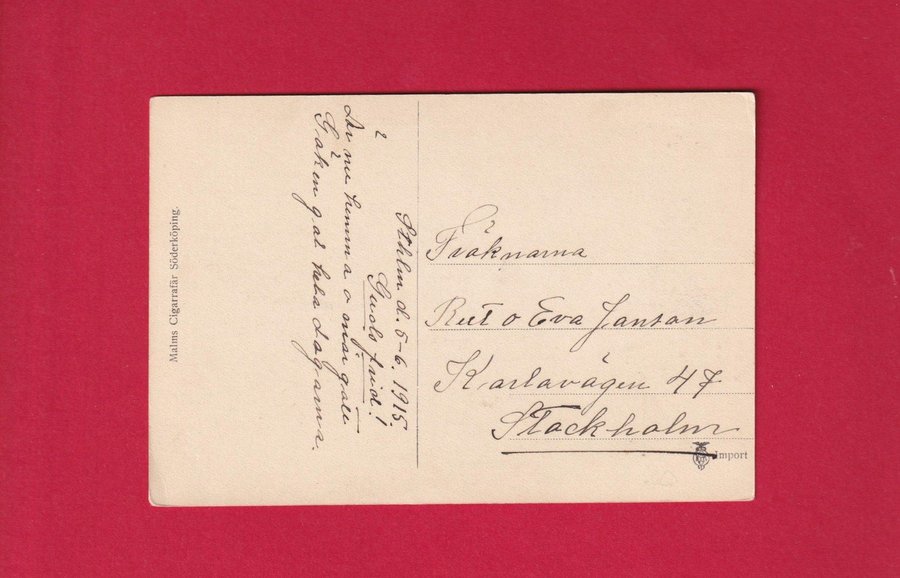 Malms Cigarrafär Söderköping.
Sthlm d. 5-6. 1915
Guds frid!
Är nu hemma o mår gott
Göken gal hela dagarna.
Fröknarna
Rut o Eva Janson
Karlavägen 47
Stockholm
Import